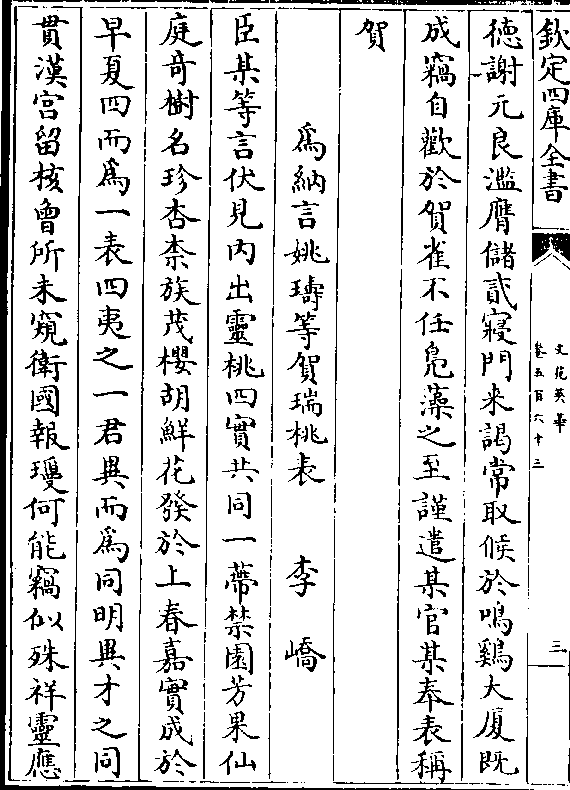 欽定四庫全書
文苑英華
卷五百六十三
三
徳謝元良濫膺儲貳寢門来謁常取候於鳴鷄大厦既
成竊自歡於賀雀不任凫藻之至謹遣某官某奉表稱
賀
爲納言姚璹等賀瑞桃表　　李嶠
臣某等言伏見内出靈桃四實共同一蔕禁園芳果仙
庭竒樹名珍杏柰族茂櫻胡鮮花發於上春嘉實成於
早夏四而爲一表四夷之一君異而爲同明異才之同
貫漢宫留核曾所未窺衛國報瓊何能竊似殊祥靈應